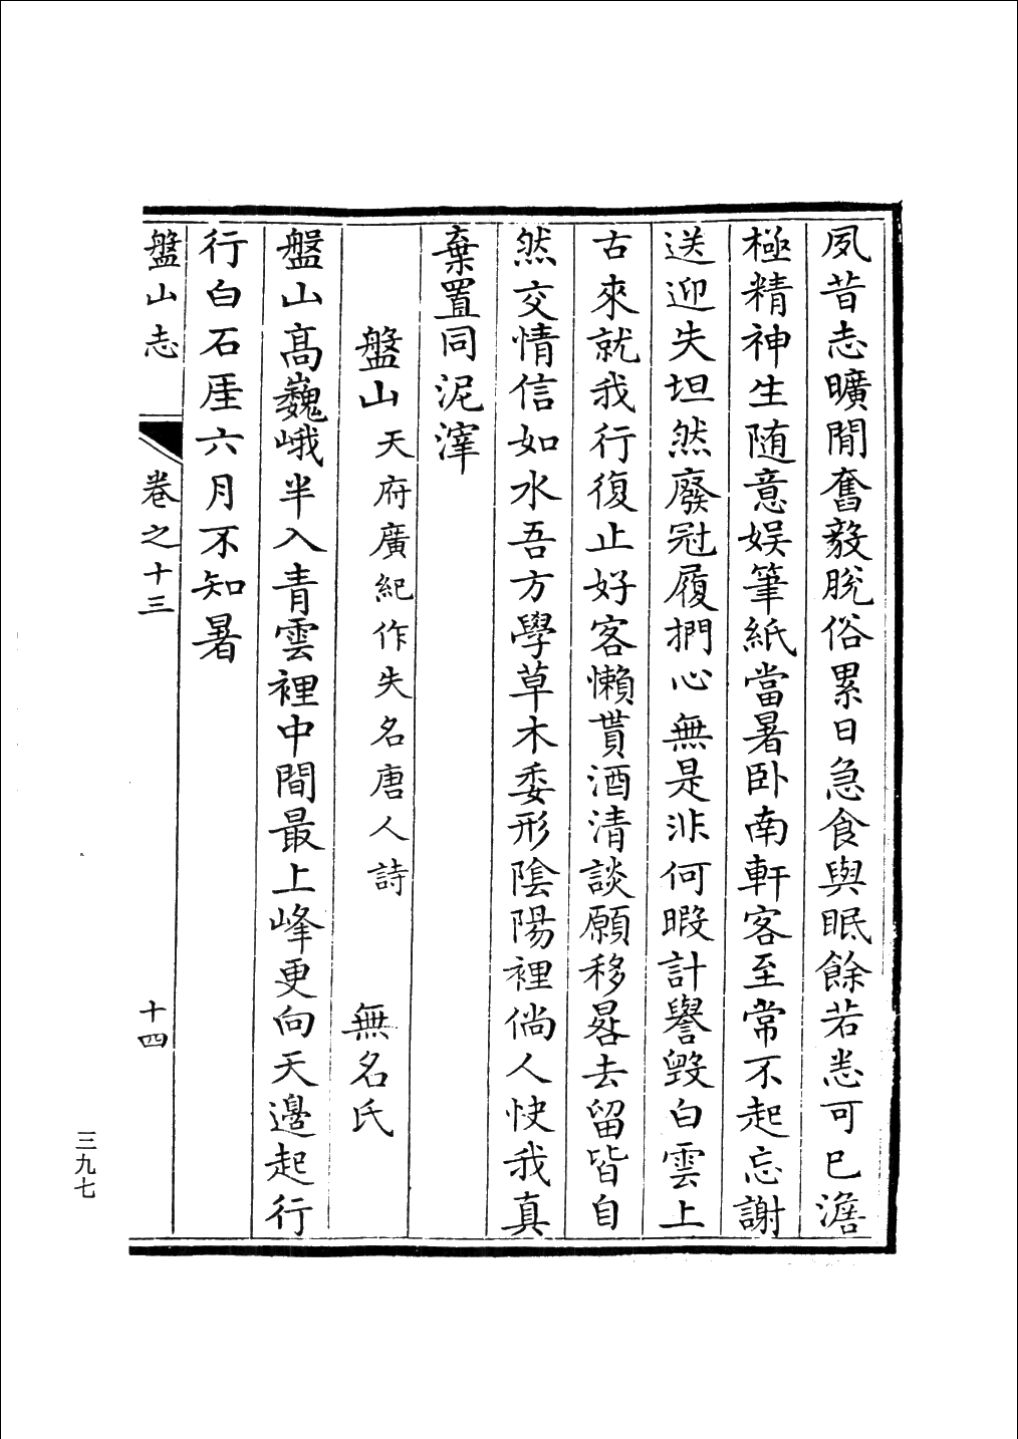 夙昔志曠閒奮毅脫俗累日急食與眠餘若恙可已澹
極精神生随意娱筆紙當暑卧南軒客至常不起忘謝
送迎失坦然廢冠履捫心無是非何暇計譽毀白雲上
古來就我行復止好客懶貰酒清談願移晷去留皆自
然交情信如水吾方學草木委形陰陽裡倘人怏我真
棄置同泥滓
盤山 天府廣紀作失名唐人詩 無名氏
盤山髙巍峨半入青雲裡中間最上峰更向天邉起行
行白石厓六月不知暑
盤山志 卷之十三 十四
三九七